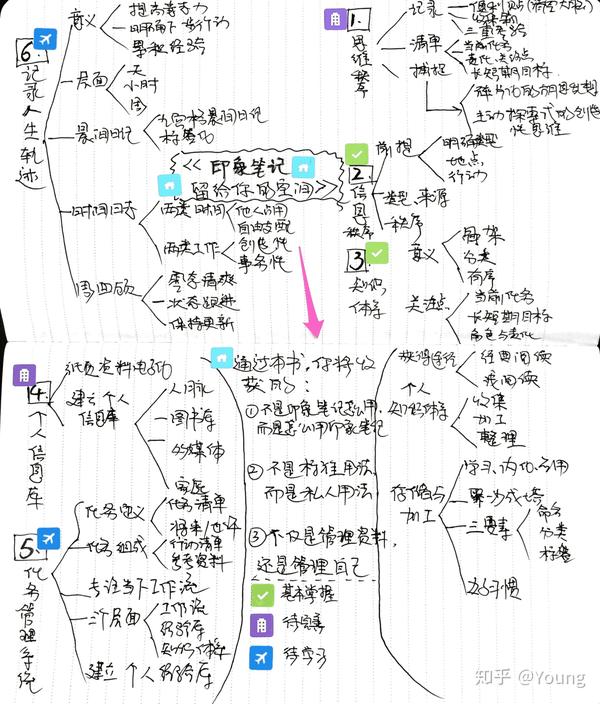 6.
记录人生轨迹
意义
提高专注力
明确下一步行动
累积经验
层面
天
小时
周
晨间日记
九宫格晨间日记
标签化
时间日志
两类时间
他人占用
自由支配
两类工作
创造性
事务性
周回顾
零存清爽
状态跟进
保持更新
<<印象笔记
留给你的空间>>
1.
思维
记录
三重考验
清单
当前任务
长短期目标
捕捉
2
信息
秩序
前提
明确类型
地点
行动
类型、来源
秩序
3
知识
体系
意义
骨架
分类
有序
关注点
当前任务
长短期目标
角色与变化
4.
个人信息库
纸质资料电子化
建立个人
信息库
人脉
图书库
多媒体
家庭
5.
任务管理系统
任务定义
任务清单
将来/也许
任务组成
行动清单
参考资料
专注当下工作流
三个层面
工作流
经验库
知识体系
建立个人经验库
通过本书,你将收
获的:
①不是印象笔记怎么用,
而是怎么用印象笔记
②不是标准用法,
而是私人用法
③不仅是管理资料,
还是管理自己
基本掌握
待完善
待学习
获得途径
经典阅读
浅阅读
个人
知识体系
收集
加工
整理
存储与
加工
学习、内化、应用
三要素
命名
分类
标签
加习惯
知乎 @Young